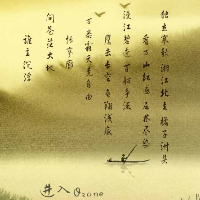 独立寒秋湘江北去橘子洲头
看万山红遍层林尽染
漫江碧透百舸争流
鹰击长空鱼翔浅底
万类霜天竞自由
怅寥廓
问苍茫大地
谁主沉浮
进入Qzone